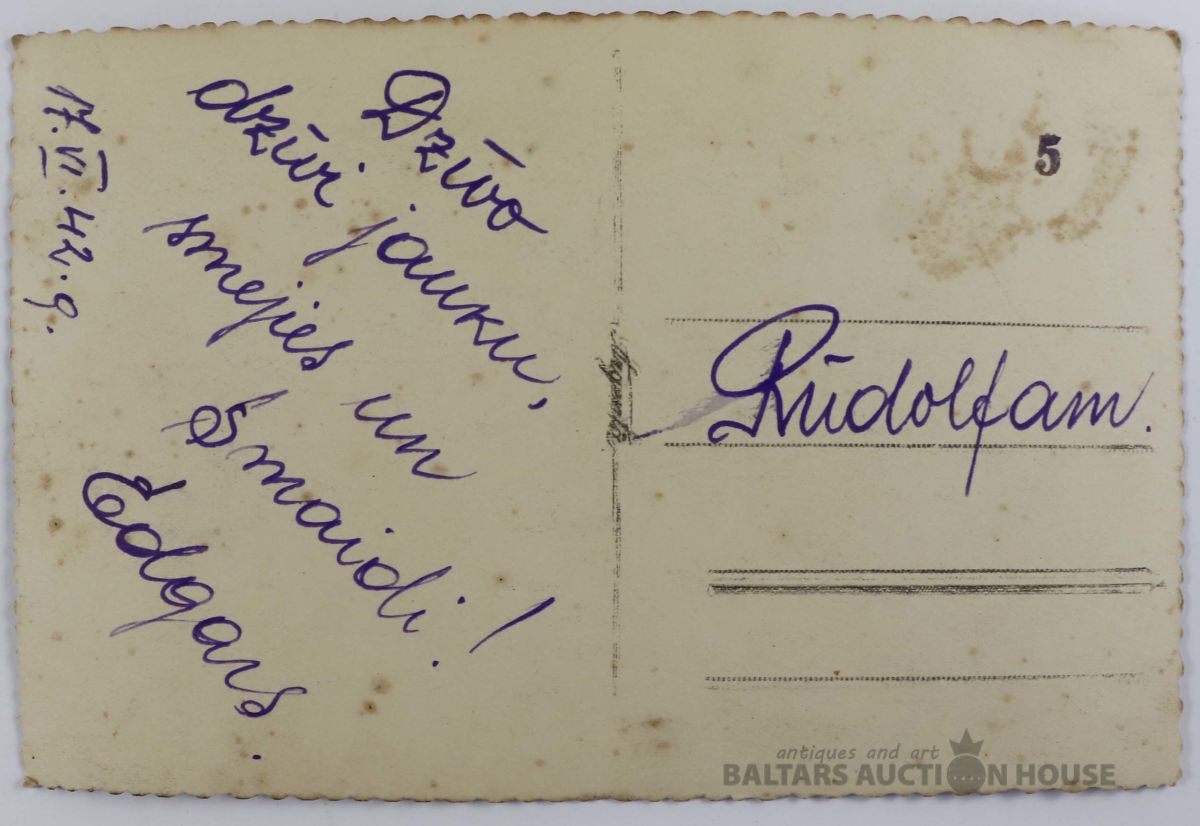 Dzīvo
dzīvi jauku,
smejies un
Smaidi!
Edgars.
17.VI.42.g.
5
Rūdolfam.
antiques and art
BALTARS AUCTION HOUSE